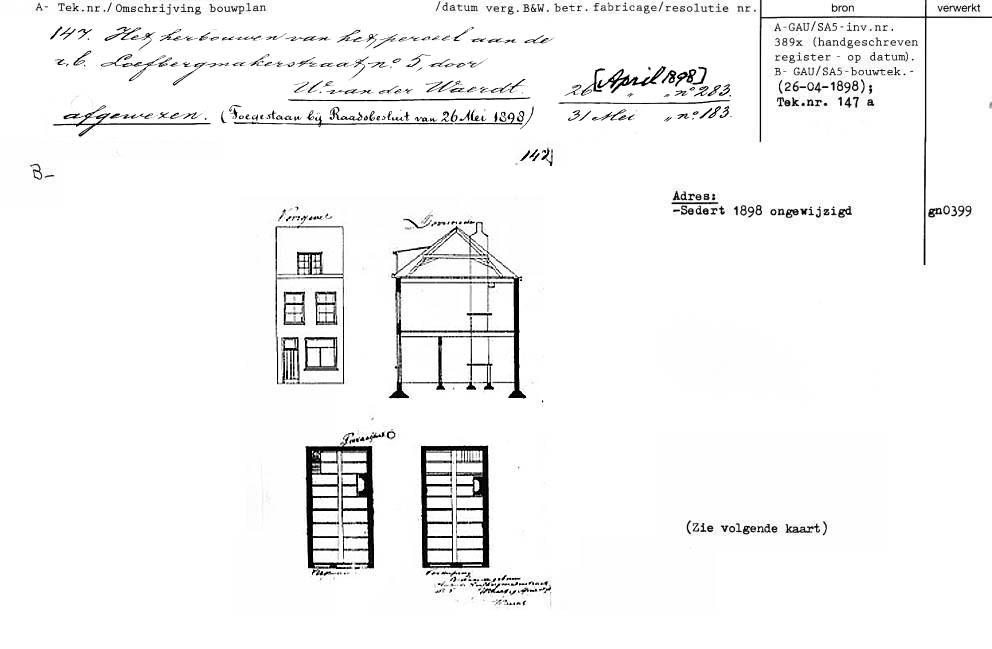 A- Tek.nr./Omschrijving bouwplan /datum verg.B&W. betr. fabricage/resolutie nr. bron verwerkt
147. Het herbouwen van het perceel aan de
z.b. Loefbergmakerstraat, no 5, door
W. van der Waerdt.
afgewezen. (Toegestaan bij Raadsbesluit van 26 Mei 1898)
[April 1898]
26 " " no 283.
31 Mei " no 183.
A-GAU/SA5-inv.nr.
389x (handgeschreven
register - op datum).
B- GAU/SA5-bouwtek.-
(26-04-1898);
Tek.nr. 147 a
147
B-
Adres:
-Sedert 1898 ongewijzigd gn0399
Voorgevel
Doorsnede
(Zie volgende kaart)